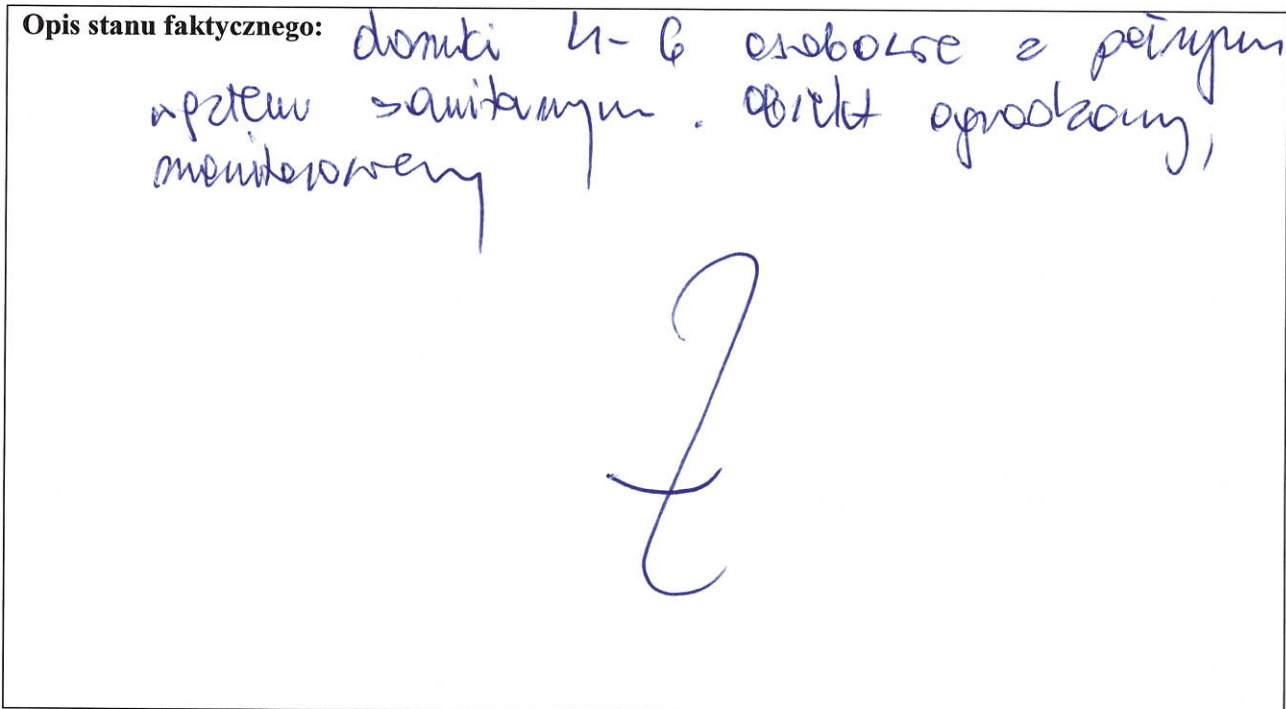 Opis stanu faktycznego: domki 4-6 osobowe z pełnym
węzłem sanitarnym. Obiekt ogrodzony,
monitorowany